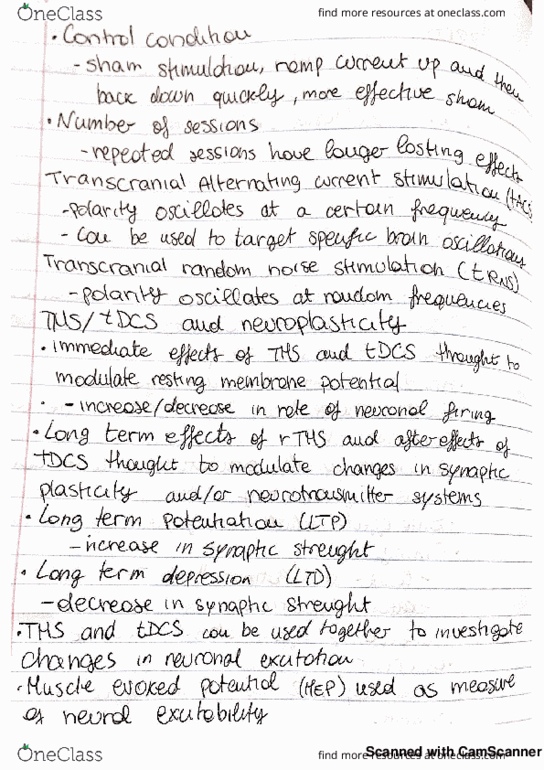 OneClass
find more resources at oneclass.com
• Control condition
- sham stimulation, ramp current up and then
back down quickly, more effective sham
• Number of sessions
- repeated sessions have longer lasting effects
Transcranial Alternating current stimulation (tACS
- polarity oscillates at a certain frequency
- can be used to target specific brain oscillations
Transcranial random noise stimulation (tRNS)
- polarity oscillates at random frequencies
TMS/tDCS and neuroplasticity
• immediate effects of TMS and tDCS thought to
modulate resting membrane potential
- increase/decrease in rate of neuronal firing
• Long term effects of rTMS and aftereffects of
tDCS thought to modulate changes in synaptic
plasticity and/or neurotransmitter systems
• Long term Potentiation (LTP)
- increase in synaptic strenght
• Long term depression (LTD)
- decrease in synaptic strenght
• TMS and tDCS can be used together to investigate
changes in neuronal exitation
• Muscle evoked potential (MEP) used as measure
of neural exitability
OneClass
find more resources at oneclass.com
Scanned with CamScanner